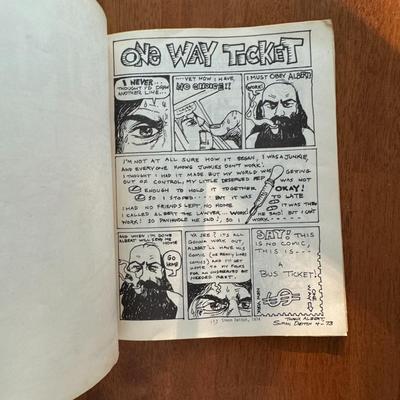 ONE WAY TICKET
I NEVER...
THOUGHT I'D DRAW
ANOTHER LINE...
...YET NOW I HAVE
NO CHOICE!!
I MUST OBEY ALBERT!
WORK!
I'M NOT AT ALL SURE HOW IT BEGAN, I WAS A JUNKIE,
AND EVERYONE KNOWS JUNKIES DON'T WORK!
I THOUGHT I HAD IT MADE BUT MY WORLD WAS GETTING
OUT OF CONTROL, MY LITTLE DESERVED REP WAS NOT
ENOUGH TO HOLD IT TOGETHER. OKAY!
SO I STOPED.... BUT IT WAS TO LATE
I HAD NO FRIENDS LEFT, NO HOME IT WAS THEN
I CALLED ALBERT THE LAWYER... WORK! HE SAID! BUT I CAN'T
WORK! SO PANHANDLE HE SAID!, SO I WORK...
AND WHEN I'M DONE
ALBERT WILL SEND ME
HOME
GO HOME
YA SEE? IT'S ALL
GONNA WORK OUT,
ALBERT'LL HAVE HIS
COMIC (HE REALLY LIKES
COMICS) AND I'LL GET
HOME TO MY FOLKS
FOR AN UNDESERVED BUT
NEEDED REST.
SAY! THIS
IS NO COMIC,
THIS IS---
A
BUS TICKET!
THANX ALBERT
SIMON DEITCH 4-73
Simon Deitch, 1974